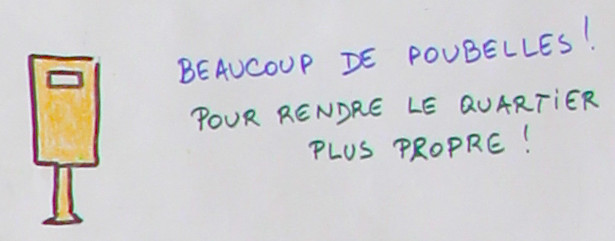 BEAUCOUP DE POUBELLES!
POUR RENDRE LE QUARTIER
PLUS PROPRE!